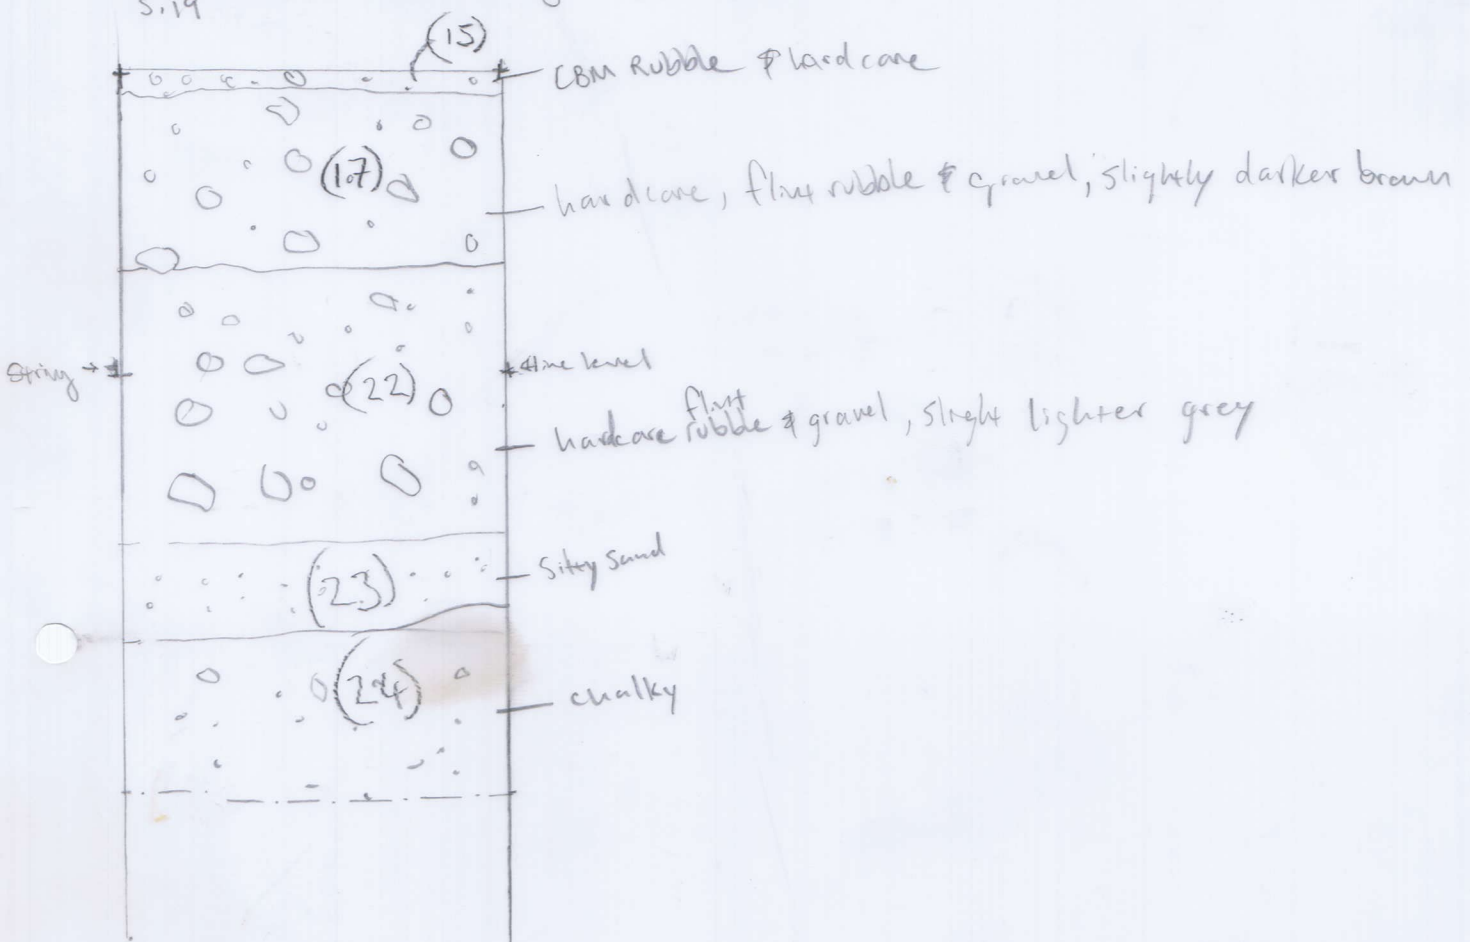 S.19
(15)
CBM Rubble & hardcore
(17)
hardcore, flint rubble & gravel, slightly darker brown
String →
line level
(22)
flint
hardcore rubble & gravel, slight lighter grey
(23)
Silty sand
(24)
chalky